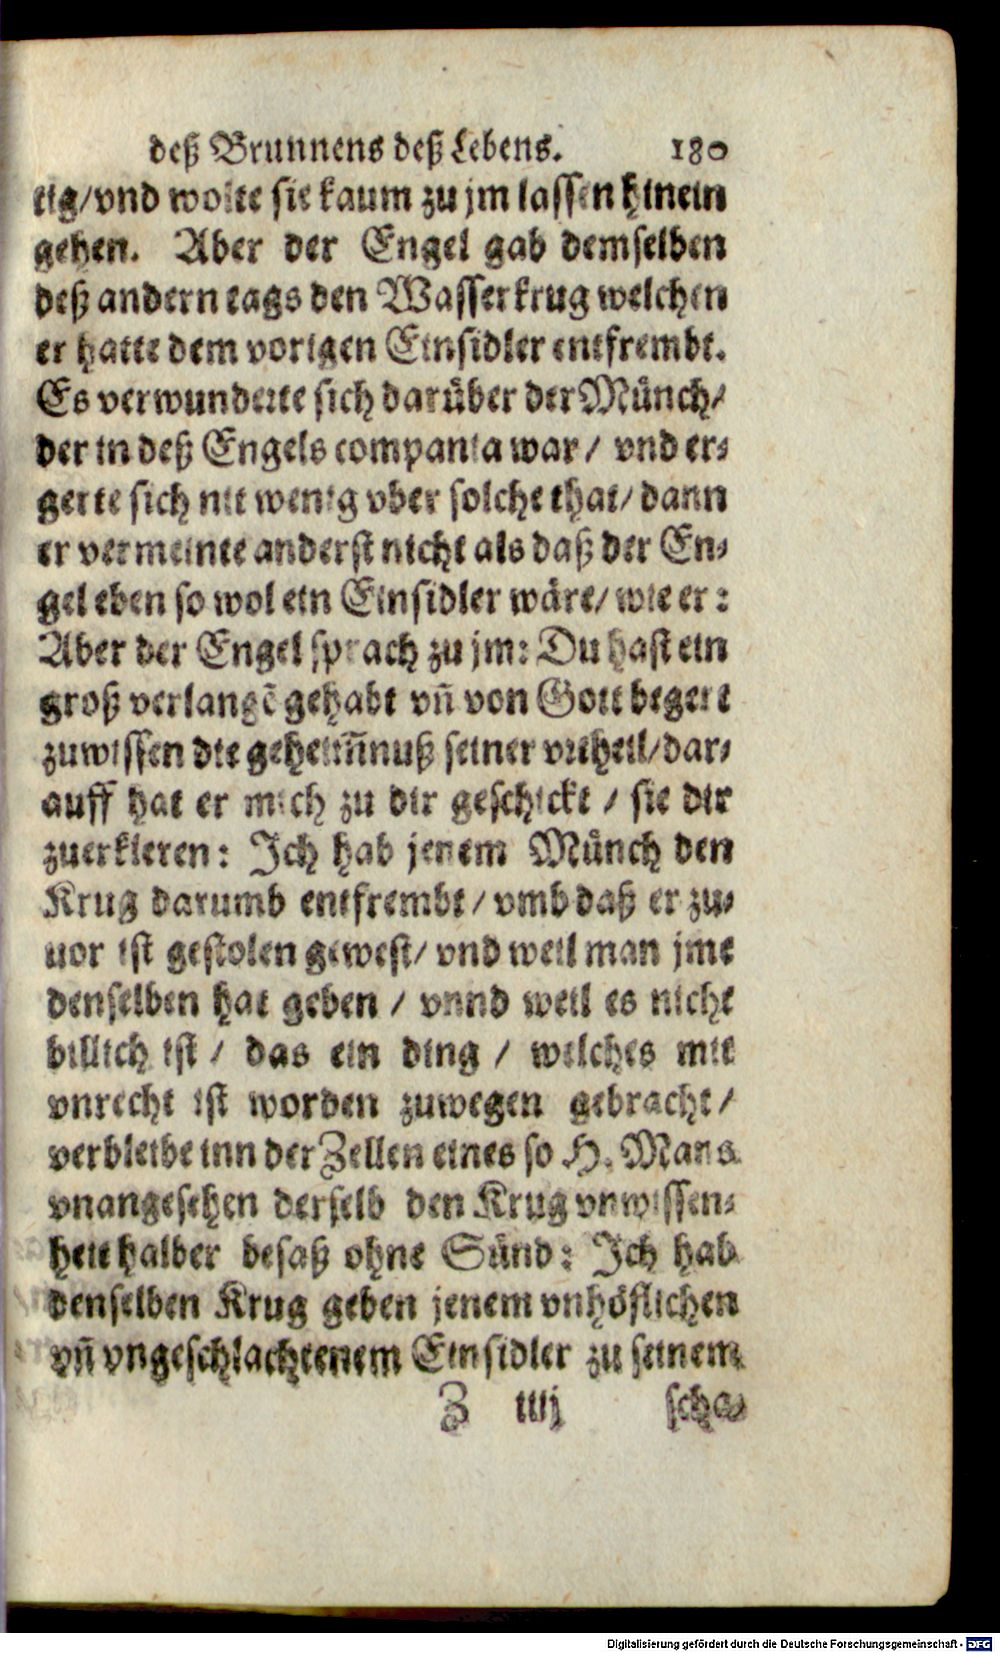 deß Brunnens deß Lebens. 180
tig/vnd wolte sie kaum zu jm lassen hinein
gehen. Aber der Engel gab demselben
deß andern tags den Wasserkrug welchen
er hatte dem vorigen Einsidler entfrembt.
Es verwunderte sich darüber der Münch/
der in deß Engels compania war/ vnd er-
gerte sich nit wenig vber solche that/ dann
er vermeinte anderst nicht als daß der En-
gel eben so wol ein Einsidler wäre/ wie er:
Aber der Engel sprach zu jm: Du hast ein
groß verlangē gehabt vñ von Gott begert
zuwissen die geheim̃nuß seiner vrtheil/dar-
auff hat er mich zu dir geschickt / sie dir
zuerkleren: Ich hab jenem Münch den
Krug darumb entfrembt/ vmb daß er zu-
uor ist gestolen gewest/ vnd weil man jme
denselben hat geben / vnnd weil es nicht
billich ist / das ein ding / welches mit
vnrecht ist worden zuwegen gebracht/
verbleibe inn der Zellen eines so H. Mans
vnangesehen derselb den Krug vnwissen-
heit halber besaß ohne Sünd: Ich hab
denselben Krug geben jenem vnhöflichen
vñ vngeschlachtenem Einsidler zu seinem
Z iiij scha-
Digitalisierung gefördert durch die Deutsche Forschungsgemeinschaft - DFG